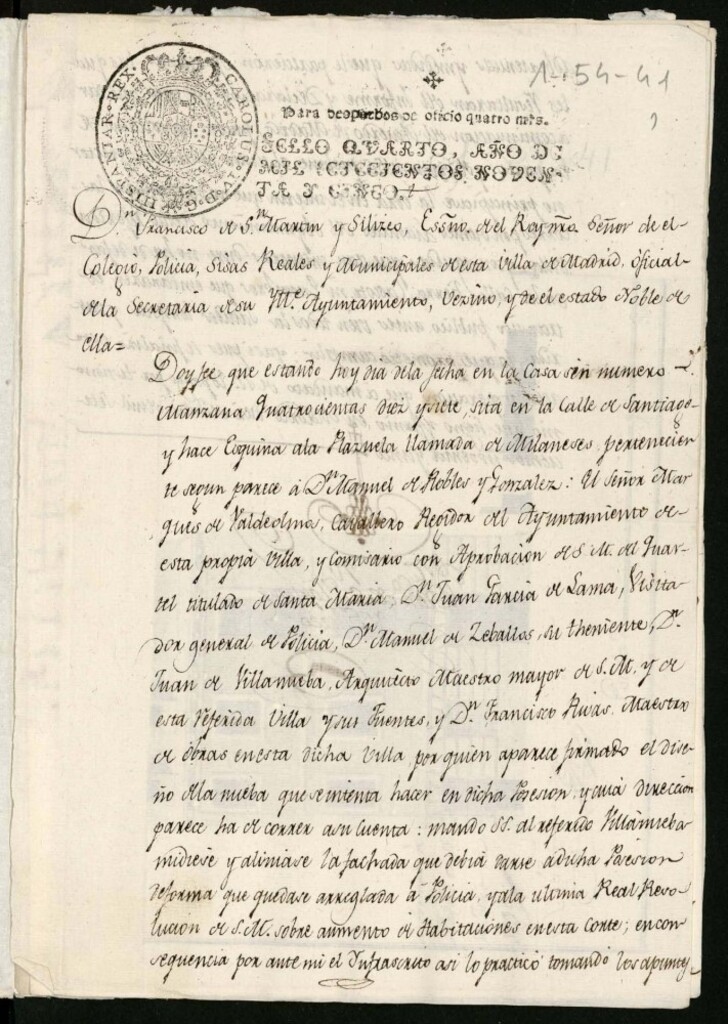 CAROLUS IV D G HISPANIAR REX
1-54-41
Para despachos de oficio quatro mrs.
SELLO QVARTO, AÑO DE
MIL SETECIENTOS NOVEN-
TA Y CINCO.
Dn. Francisco de Sn. Martin y Silizeo, Essno. del Rey nro. Señor de el
Colegio, Policia, Sisas Reales y Municipales de esta Villa de Madrid, oficial
de la Secretaria de su Yll.e Ayuntamiento, Vezino, y de el estado Noble de
ella=
Doy fee que estando hoy dia dela fecha en la Casa sin numero
Manzana quatrocientas diez y siete, sita en la Calle de Santiago
y hace Esquina ala Plazuela llamada de Milaneses, pertenecien-
te segun parece á Dn. Manuel de Robles y Gonzalez: El Señor Mar-
qués de Valdeolmo, Cavallero Regidor del Ayuntamiento de
esta propia Villa, y Comisario con Aprobacion de S. M. del Quar-
tel titulado de Santa Maria, Dn. Juan Garcia de Lama, Visita-
dor general de Policia, Dn. Manuel de Zeballos, su theniente, Dn.
Juan de Villanueba, Arquitecto Maestro mayor de S. M. y de
esta referida Villa y sus Fuentes, y Dn. Francisco Rivas, Maestro
de obras en esta dicha Villa por quien aparece firmado el dise-
ño dela nueba que se intenta hacer en dicha Posesion, y cuia direccion
parece ha de correr a su cuenta: mando SS. al referido Villanueba
midiese y aliniase la fachada que debia darse a dicha Posesion
deforma que quedase arreglada á Policia, y ala ultima Real Reso-
lucion de S. M. sobre aumento de Habitaciones en esta Corte; en con-
sequencia por ante mi el Infrascrito asi lo practicó tomando los apuntes